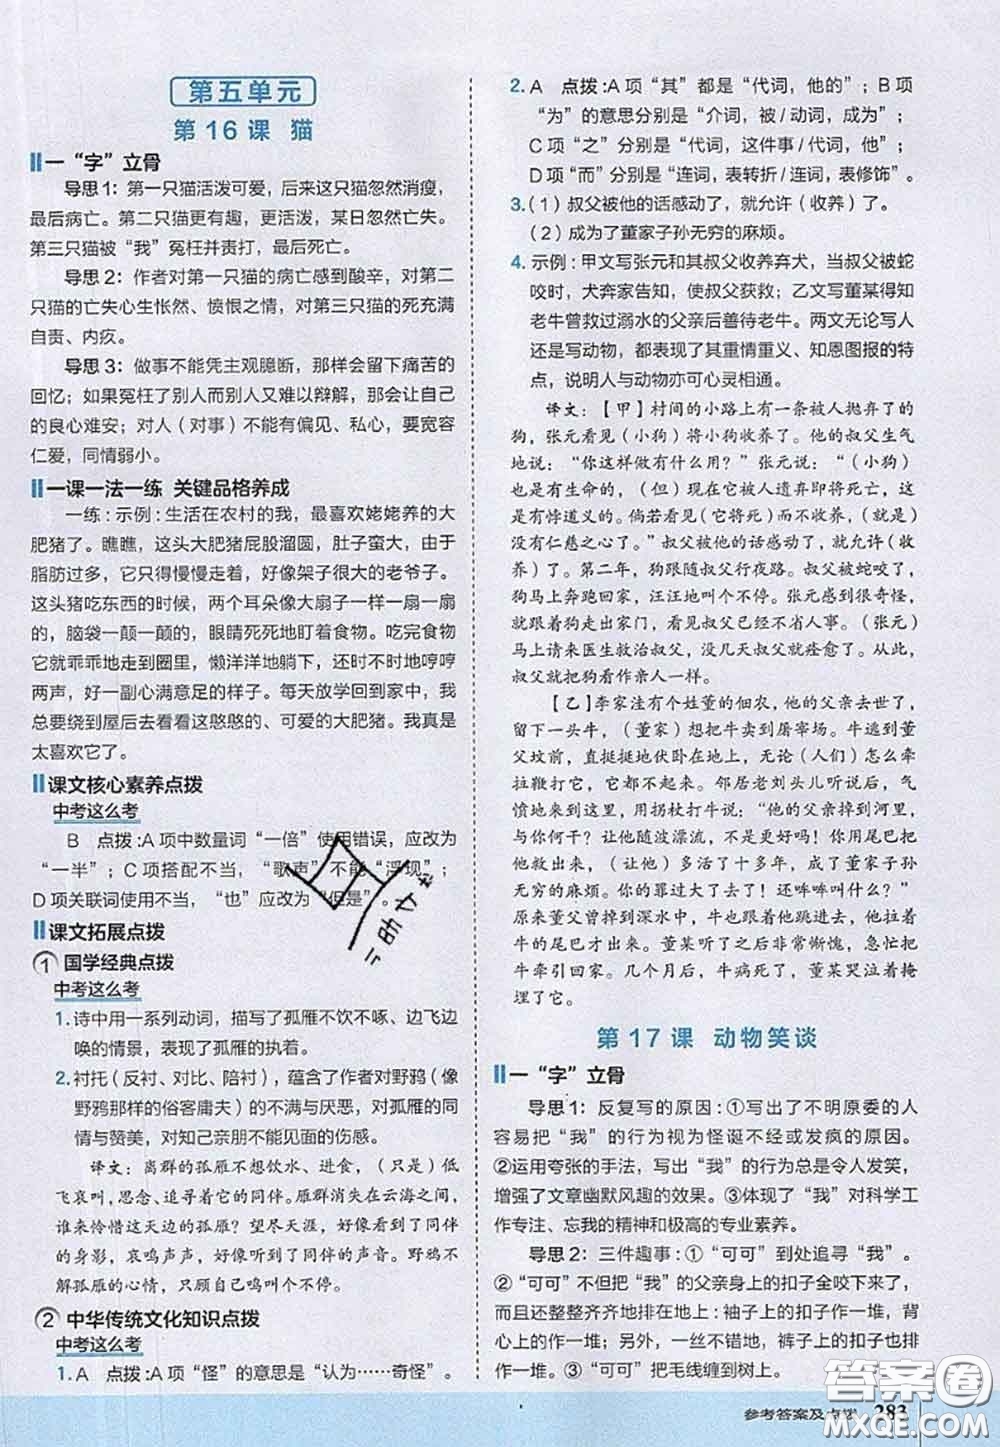 第五单元
第 16 课 猫
一“字”立骨
导思1：第一只猫活泼可爱，后来这只猫忽然消瘦，
最后病亡。第二只猫更有趣，某日忽然亡失。
第三只猫被“我”冤枉并责打，最后死亡。
导思2：作者对第一只猫的病亡感到酸辛，对第二
只猫的亡失心生怅然、愤恨之情，对第三只猫的死充满
自责、内疚。
导思3：做事不能凭主观臆断，那样会留下痛苦的
回忆；如果冤枉了别人而别人又难以辩解，那会让自己
的良心难安；对人（对事）不能有偏见、私心，要宽容
仁爱，同情弱小。
一课一法一练 关键品格养成
一练：示例：生活在农村的我，最喜欢姥姥养的大
肥猪了。瞧瞧，这头大肥猪屁股溜圆，肚子蛮大，由于
脂肪过多，它只得慢慢走着，好像架子很大的老爷子。
这头猪吃东西的时候，两个耳朵像大扇子一样一扇一扇
的，脑袋一颠一颠的，眼睛死死地盯着食物。吃完食物
它就乖乖地走到圈里，懒洋洋地躺下，还时不时地哼哼
两声，好一副心满意足的样子。每天放学回到家中，我
总要绕到屋后去看看这憨憨的、可爱的大肥猪。我真是
太喜欢它了。
课文核心素养点拨
中考这么考
B 点拨：A 项中数量词“一倍”使用错误，应改为
“一半”；C 项搭配不当，“歌声”不能“浮现”；
D 项关联词使用不当，“也”应改为“但是”。
课文拓展点拨
1 国学经典点拨
中考这么考
1. 诗中用一系列动词，描写了孤雁不饮不啄、边飞边
唤的情景，表现了孤雁的执着。
2. 衬托（反衬、对比、陪衬），蕴含了作者对野鸦（像
野鸦那样的俗客庸夫）的不满与厌恶，对孤雁的同
情与赞美，对知己亲朋不能见面的伤感。
译文：离群的孤雁不想饮水、进食，（只是）低
飞哀叫，思念、追寻着它的同伴。雁群消失在云海之间，
谁来怜惜这天边的孤雁？望尽天涯，好像看到了同伴
的身影，哀鸣声声，好像听到了同伴的声音。野鸦不
解孤雁的心情，只顾自己鸣叫个不停。
2 中华传统文化知识点拨
中考这么考
1. A 点拨：A 项“怪”的意思是“认为……奇怪”。
2. A 点拨：A 项“其”都是“代词，他的”；B 项
“为”的意思分别是“介词，被 / 动词，成为”；
C 项“之”分别是“代词，这种事 / 代词，他”；
D 项“而”分别是“连词，表转折 / 连词，表修饰”。
3.（1）叔父被他的话感动了，就允许（收养）了。
（2）成为了董家子孙无穷的麻烦。
4. 示例：甲文写张元和其叔父收养弃犬，当叔父被蛇
咬时，犬奔家告知，使叔父获救；乙文写董某得知
老牛曾救过溺水的父亲后善待老牛。两文无论写人
还是写动物，都表现了其重情重义、知恩图报的特
点，说明人与动物亦可心灵相通。
译文：【甲】村间的小路上有一条被人抛弃了的
狗，张元看见（小狗）将小狗收养了。他的叔父生气
地说：“你这样做有什么用？”张元说：“（小狗）
也是有生命的，（但）现在它被人遗弃即将死亡，这
是有悖道义的。倘若看见（它将死）而不收养，（就是）
没有仁慈之心了。”叔父被他的话感动了，就允许（收
养）了。第二年，狗跟随叔父行夜路。叔父被蛇咬了，
狗马上奔跑回家，汪汪地叫个不停。张元感到很奇怪，
就跟着狗走出家门，看见叔父已经不省人事。（张元）
马上请来医生救治叔父，没几天叔父就痊愈了。从此，
叔父就把狗看作亲人一样。
【乙】李家洼有个姓董的佃农，他的父亲去世，
留下一头牛，（董家）要把牛卖到屠宰场。牛逃到董
父坟前，直挺挺地伏卧在地上，无论（人们）怎么牵
拉鞭打它，它都一动不动。邻居老刘头儿听说后，气
愤地来到这里，用拐杖打牛说：“他的父亲掉到河里，
与你何干？让他随波漂流，不是更好吗！你用尾巴把
他救出来，（让他）多活了十多年，成了董家子孙
无穷的麻烦。你的罪过大了去了！还哞哞叫什么？”
原来董父曾掉到深水中，牛也跟着跳进去，他抓住
牛的尾巴才出来。董某知道后非常惭愧，急忙把
牛牵引回家。几个月后，牛病死了，董某哭泣着掩
埋了它。
第 17 课 动物笑谈
一“字”立骨
导思1：反复写的原因：①写出了不明原委的人
容易把“我”的行为视为怪诞不经或发疯的原因。
②运用夸张的手法，写出“我”的行为总是令人发笑，
增强了文章幽默风趣的效果。③体现了“我”对科学工
作专注、忘我的精神和极高的专业素养。
导思2：三件趣事：①“可可”到处追寻“我”。
②“可可”不但把“我”的父亲身上的扣子全咬下来了，
而且还整整齐齐地排在地上：袖子上的扣子作一堆，背
心上的作一堆；另外，一丝不错地，裤子上的扣子也排
作一堆。③“可可”把毛线缠到树上。
参考答案及点拨 283
答案圈
MXQE.COM